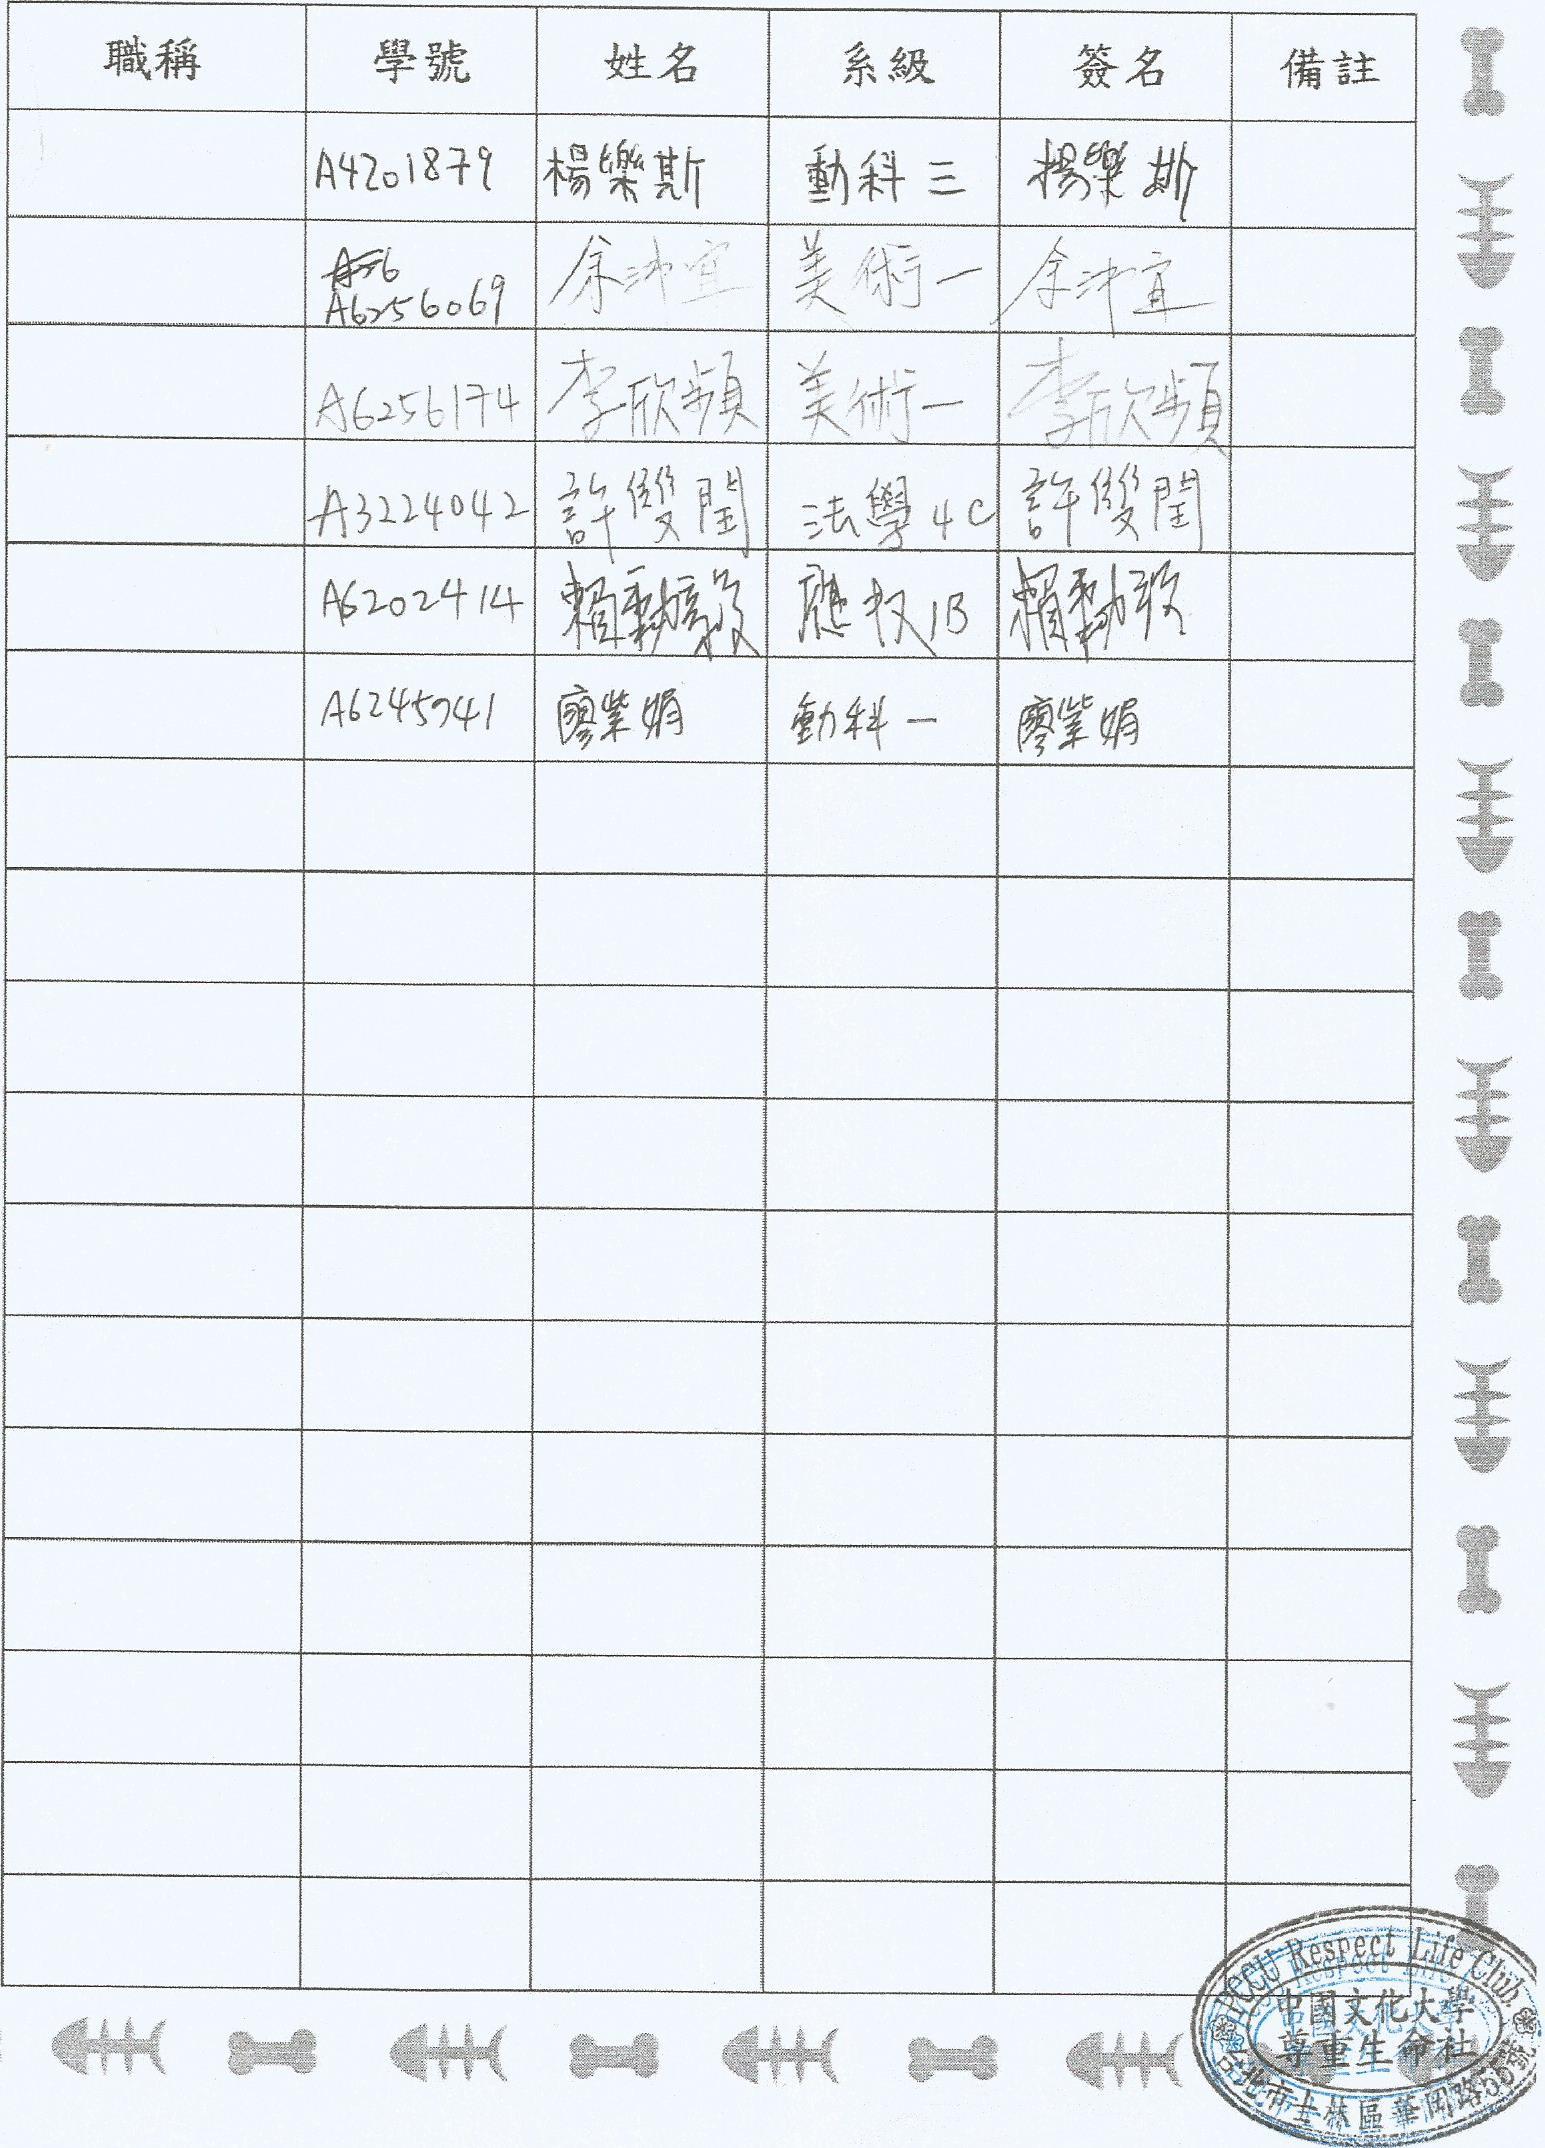 職稱 學號 姓名 系級 簽名 備註
A4201879 楊樂斯 動科三 楊樂斯
A6256069 余沛宜 美術一 余沛宜
A6256174 李欣頻 美術一 李欣頻
A3224042 許雙閏 法學4C 許雙閏
A6202414 賴勤毅 應数1B 賴勤毅
A6245741 廖紫娟 動科一 廖紫娟
PCCU Respect Life Club.
中國文化大學
尊重生命社
台北市士林區華岡路55號